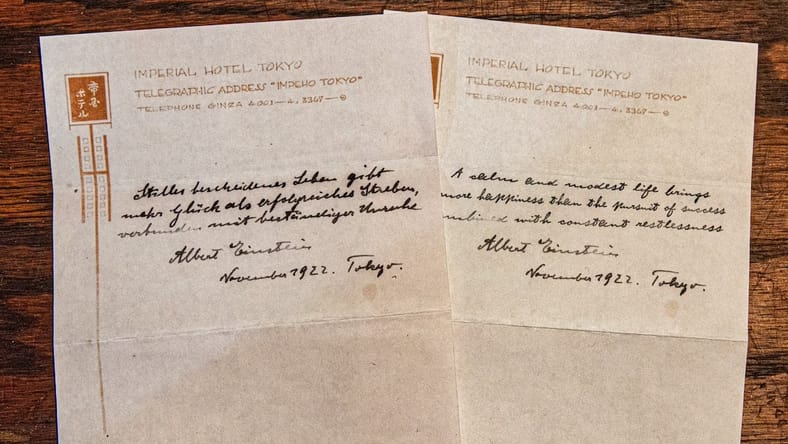 IMPERIAL HOTEL TOKYO
TELEGRAPHIC ADDRESS "IMPEHO TOKYO"
TELEPHONE GINZA 4001—4, 3367—9
帝国
ホテル
Stilles bescheidenes Leben gibt
mehr Glück als erfolgreiches Streben,
verbunden mit beständiger Unruhe
Albert Einstein
November 1922. Tokyo.
IMPERIAL HOTEL TOKYO
TELEGRAPHIC ADDRESS "IMPEHO TOKYO"
TELEPHONE GINZA 4001—4, 3367—9
A calm and modest life brings
more happiness than the pursuit of success
with constant restlessness
Albert Einstein
November 1922. Tokyo.